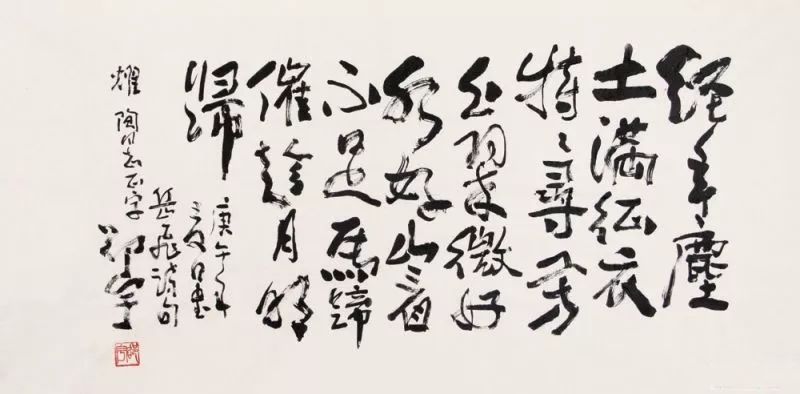 經年塵
土滿征衣
特特尋芳
上翠微好
水好山看
不足馬蹄
催趁月明
歸
庚午年
岳飛詩句
耀陶同志正字